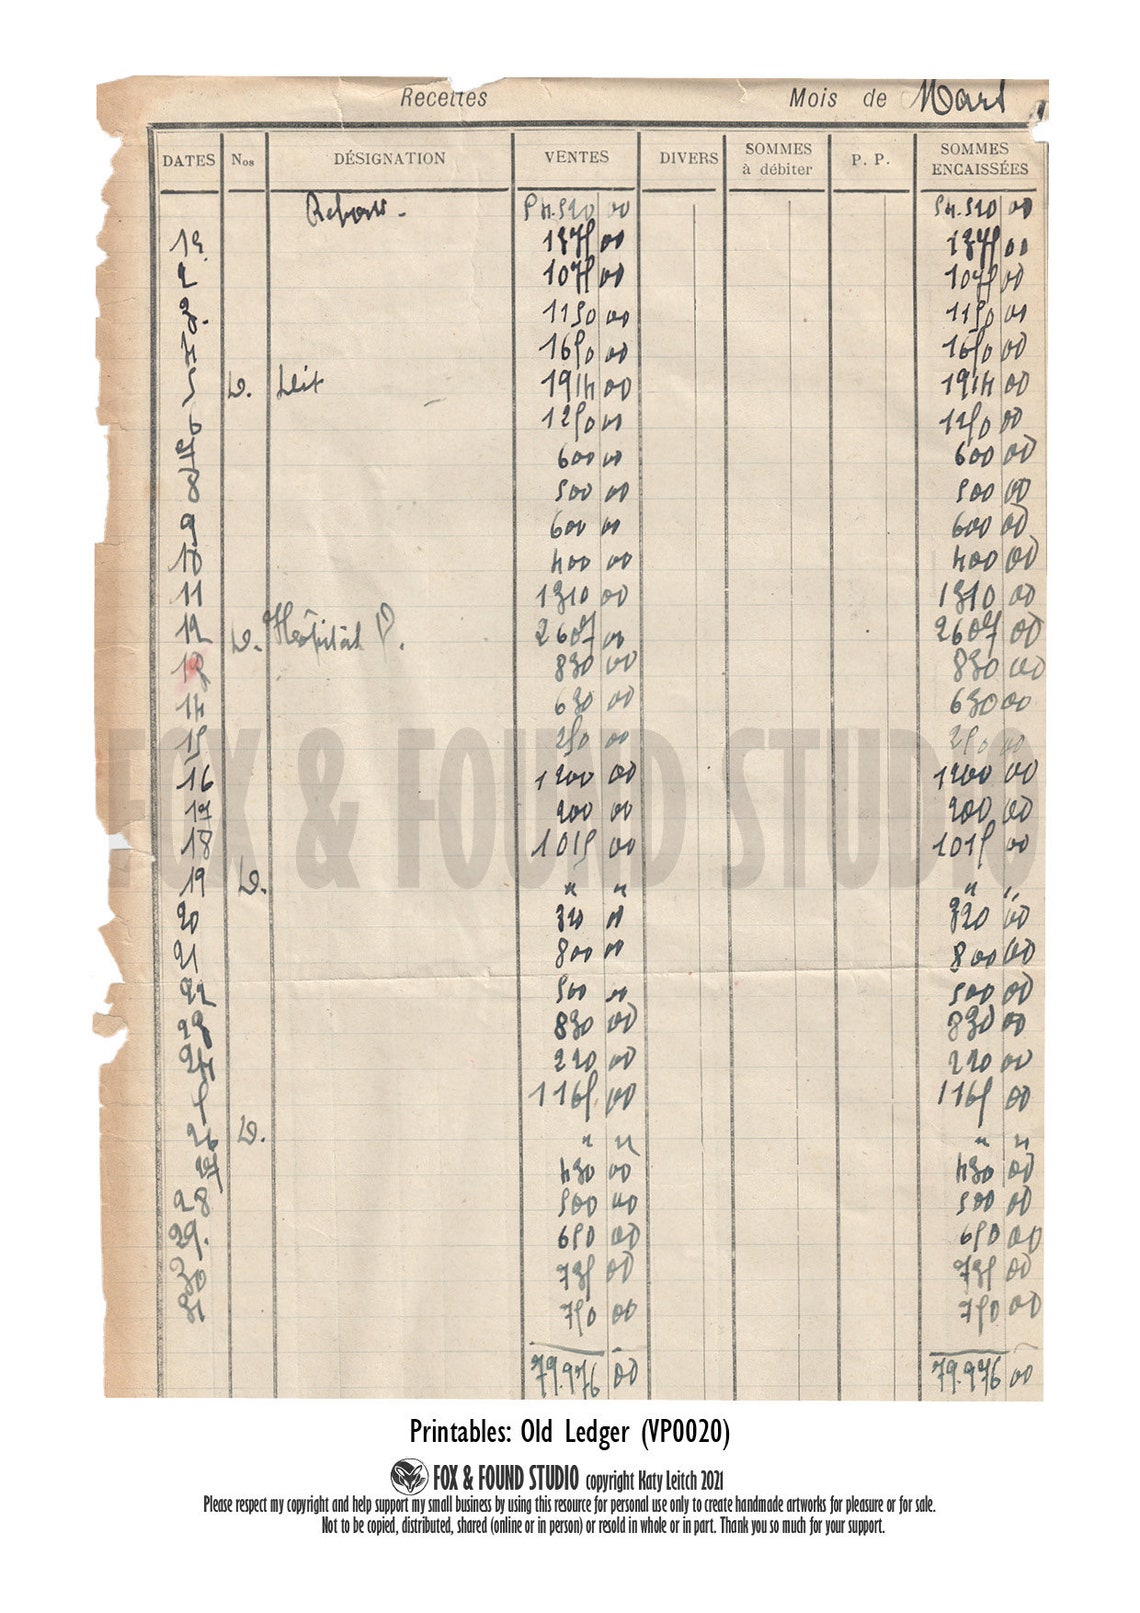 Recettes Mois de Mars
DATES Nos DÉSIGNATION VENTES DIVERS SOMMES à débiter P. P. SOMMES ENCAISSÉES
Report. 54.520 00 54.520 00
1375 00 1375 00
2 1075 00 1075 00
3. 1150 00 1150 00
4 1650 00 1650 00
5 D. 1914 00 1914 00
6 1250 00 1250 00
7 600 00 600 00
8 500 00 500 00
9 600 00 600 00
10 400 00 400 00
11 1310 00 1310 00
12 D. Hôpital 2607 00 2607 00
13 830 00 830 00
14 630 00 630 00
15 250 00 250 00
16 1200 00 1200 00
17 200 00 200 00
18 1015 00 1015 00
19 D. " " " "
20 320 00 320 00
21 800 00 800 00
22 500 00 500 00
23 830 00 830 00
24 220 00 220 00
1165 00 1165 00
26 D. " " " "
27 430 00 430 00
28 500 00 500 00
29. 650 00 650 00
30 735 00 735 00
31 750 00 750 00
79.976 00 79.976 00
FOX & FOUND STUDIO
Printables: Old Ledger (VP0020)
FOX & FOUND STUDIO copyright Katy Leitch 2021
Please respect my copyright and help support my small business by using this resource for personal use only to create handmade artworks for pleasure or for sale.
Not to be copied, distributed, shared (online or in person) or resold in whole or in part. Thank you so much for your support.